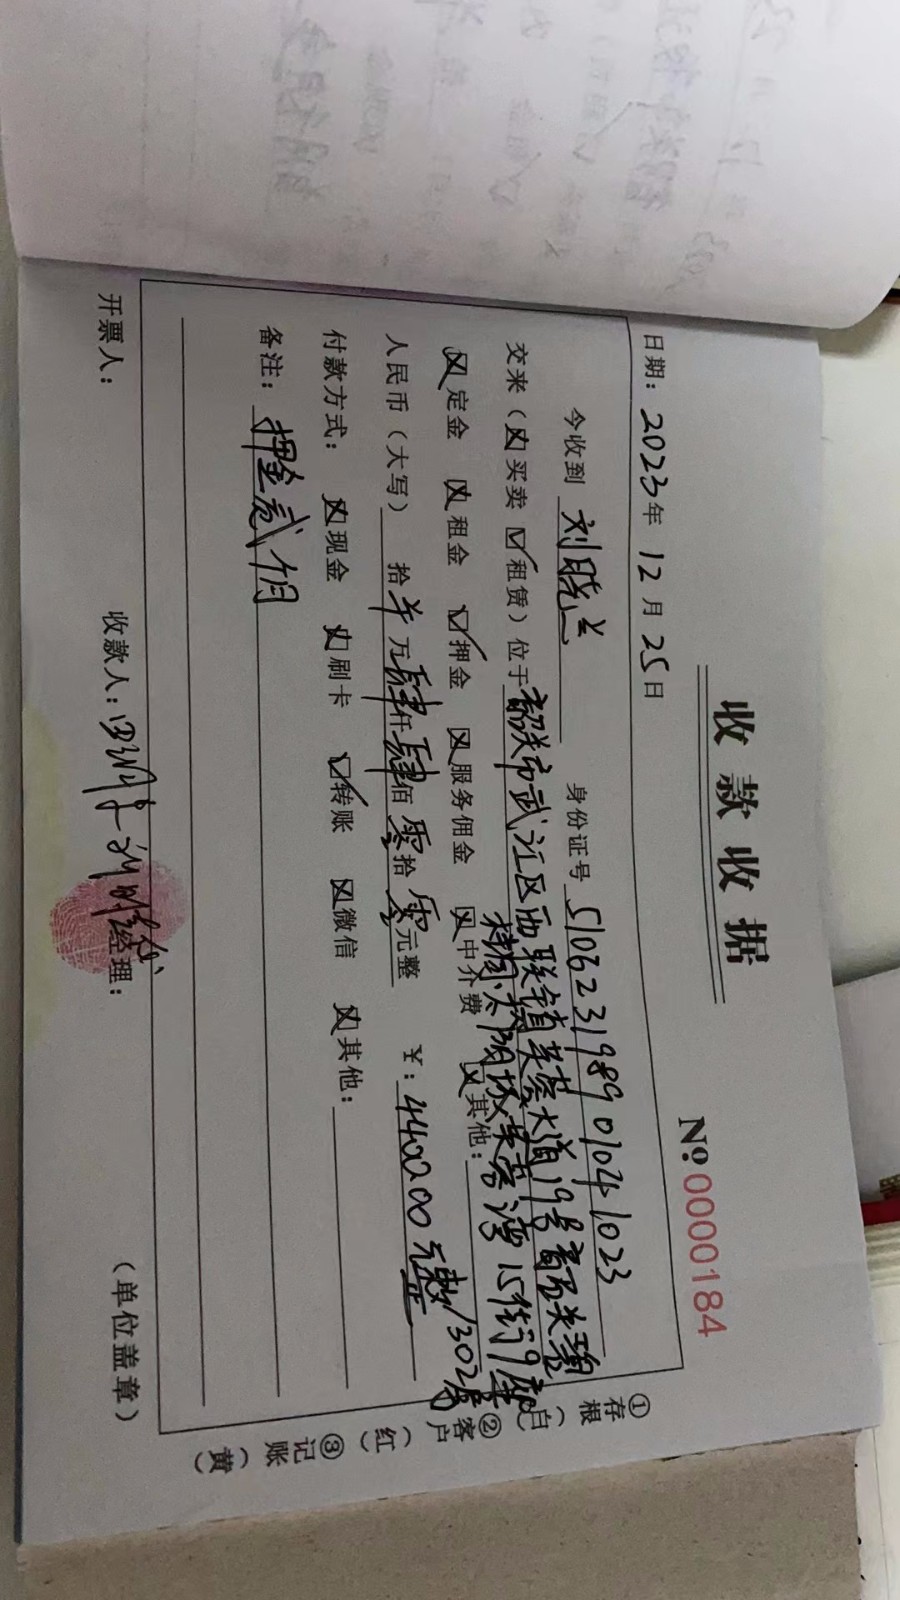 收款收据
№0000184
日期：2023年12月25日
今收到 刘晓兰 身份证号 510623198901041023
交来（☒买卖 ☑租赁）位于韶关市武江区西联镇芙蓉大道19号韶关碧
桂园太阳城芙蓉湾15街9座
1302房
☒定金 ☒租金 ☑押金 ☒服务佣金 ☒中介费 ☒其他：
人民币（大写） 拾 万肆仟肆佰零拾零元整 ￥：4400.00元整
付款方式： ☒现金 ☒刷卡 ☑转账 ☒微信 ☒其他：
备注： 押金贰个月
开票人： 收款人： 经理： （单位盖章）
①存根（白） ②客户（红） ③记账（黄）